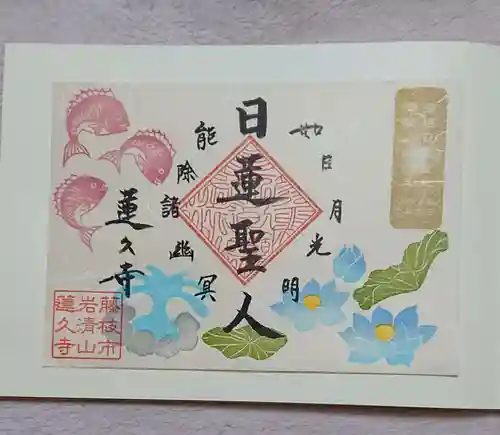 如日月光明
日蓮聖人
能除諸幽冥
蓮久寺
藤枝市
岩清山
蓮久寺